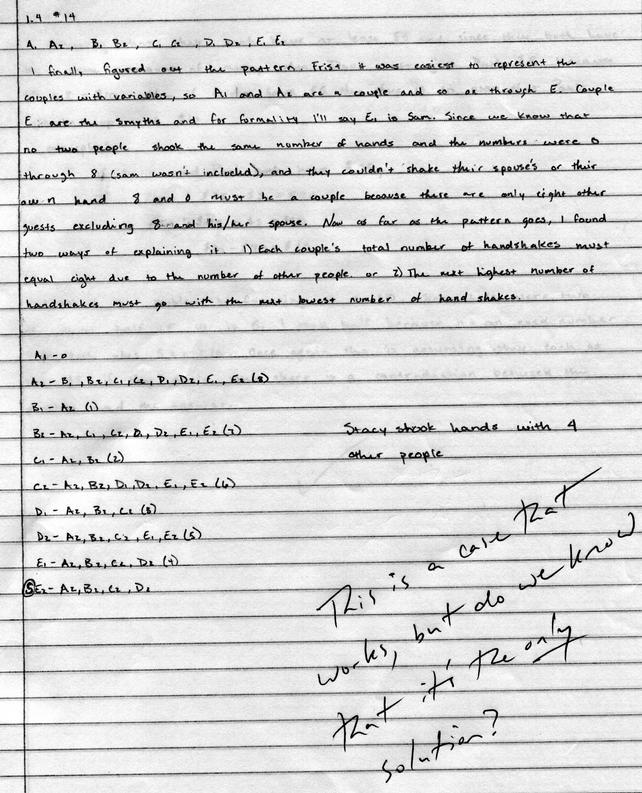 1.4 #14
A1 A2, B1 B2, C1 C2, D1 D2, E1 E2
I finally figured out the pattern. Frist it was easiest to represent the
couples with variables, so A1 and A2 are a couple and so on through E. Couple
E are the smyths and for formality I'll say E1 is Sam. Since we know that
no two people shook the same number of hands and the numbers were 0
through 8 (sam wasn't included), and they couldn't shake their spouse's or their
own hand 8 and 0 must be a couple because there are only eight other
guests excluding 8 and his/her spouse. Now as far as the pattern goes, I found
two ways of explaining it. 1) Each couple's total number of handshakes must
equal eight due to the number of other people. or 2) The next highest number of
handshakes must go with the next lowest number of hand shakes.
A1 - 0
A2 - B1, B2, C1, C2, D1, D2, E1, E2 (8)
B1 - A2 (1)
B2 - A2, C1, C2, D1, D2, E1, E2 (7)
Stacy shook hands with 4
C1 - A2, B2 (2)
other people
C2 - A2, B2, D1, D2, E1, E2 (6)
D1 - A2, B2, C2 (3)
D2 - A2, B2, C2, E1, E2 (5)
E1 - A2, B2, C2, D2 (4)
S E2 - A2, B2, C2, D2
This is a case that
works, but do we know
that it's the only
solution?